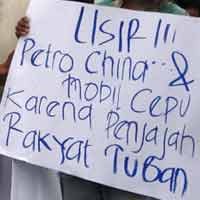 USIR !!!
Petro China.. &
mobil Cepu
Karena Penjajah
Rakyat Tuban